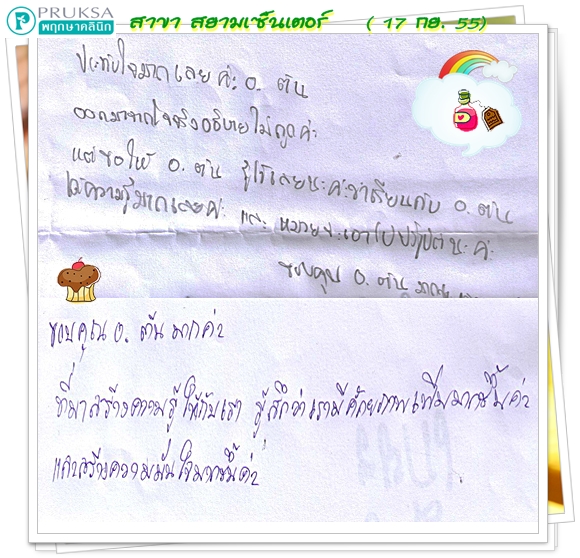 PRUKSA
พฤกษาคลินิก
สาขา สยามเซ็นเตอร์ ( 17 กย. 55)
ประทับใจมากเลยค่ะ อ. ต้น
ออกมาจากใจจริงอธิบายไม่ถูกค่ะ
แต่ขอให้ อ. ต้น รู้ไว้เลยนะคะว่าเรียนกับ อ. ต้น
ได้ความรู้มากเลยค่ะ และ เอาไปปฏิบัตินะค่ะ
ขอบคุณ อ. ต้น
ขอบคุณ อ. ต้น มากค่ะ
ที่มาสร้างความรู้ให้กับเรา รู้สึกว่าเรามีศักยภาพเพิ่มมากขึ้นค่ะ
และสร้างความมั่นใจมากขึ้นค่ะ